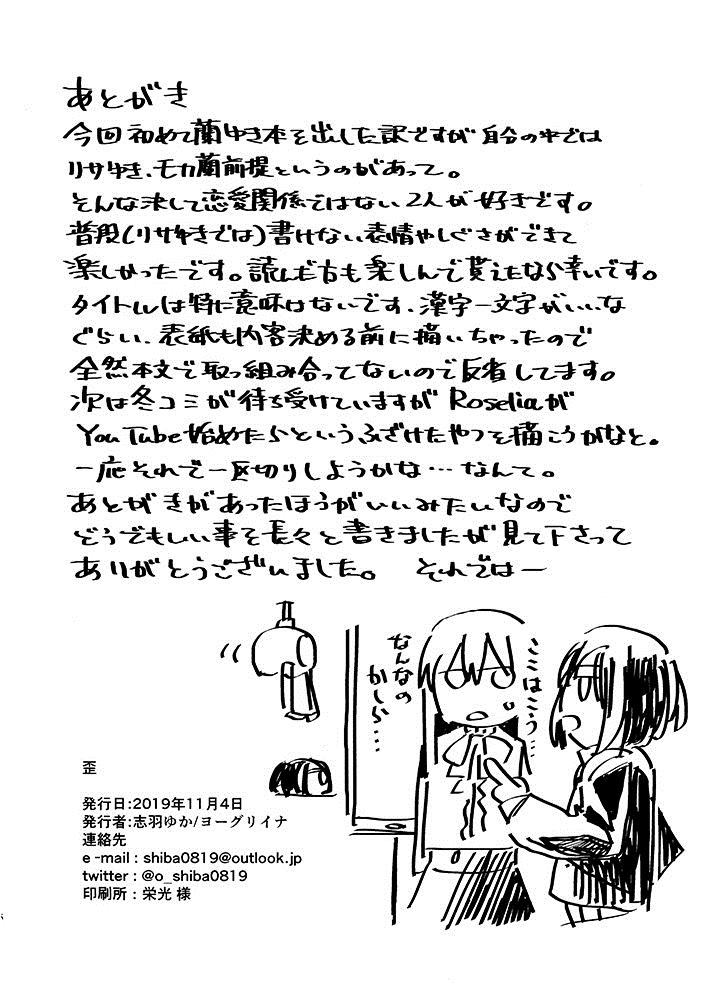 あとがき
今回初めて蘭ゆき本を出した訳ですが自分の中では
リサゆき、モカ蘭前提というのがあって。
そんな決して恋愛関係ではない2人が好きです。
普段(リサゆきでは)書けない表情やしぐさができて
楽しかったです。読んだ方も楽しんで貰えたなら幸いです。
タイトルは特に意味はないです、漢字一文字がいいな
ぐらい、表紙も内容決める前に描いちゃったので
全然本文で取っ組み合ってないので反省してます。
次は冬コミが待ち受けていますがRoseliaが
YouTube始めたらというふざけたやつを描こうかなと。
一応それで一区切りしようかな…なんて。
あとがきがあったほうがいいみたいなので
どうでもいい事を長々と書きましたが見て下さって
ありがとうございました。 それではー
ここはこう…
なんなの
かしら…
歪
発行日:2019年11月4日
発行者:志羽ゆか/ヨーグリイナ
連絡先
e -mail : shiba0819@outlook.jp
twitter : @o_shiba0819
印刷所 : 栄光 様